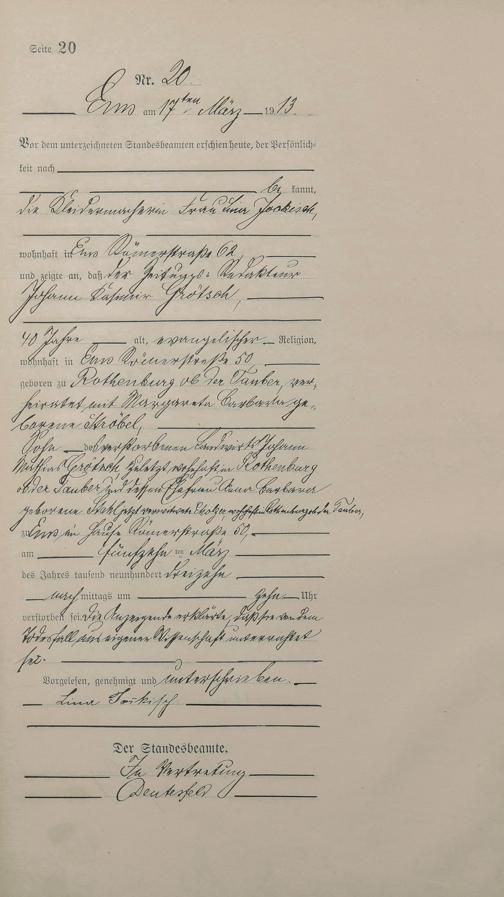 Seite 20
Nr. 20
Ems am 17ten März 1913.
Vor dem unterzeichneten Standesbeamten erschien heute, der Persönlich-
keit nach
be kannt,
die Kleidermacherin Frau Lina Jockisch,
wohnhaft in Ems Römerstraße 62,
und zeigte an, daß der Zeitungs-Redakteur
Johann Casimir Grötsch,
40 Jahre alt, evangelischer Religion,
wohnhaft in Ems Römerstraße 50,
geboren zu Rothenburg ob der Tauber, ver-
heiratet mit Margareta Barbara ge-
borene Ströbel,
Sohn des verstorbenen Landwirts Johann
Mathias Grötsch zuletzt wohnhaft in Rothenburg
ob der Tauber und dessen Ehefrau Anna Barbara
geborene jetzt verwitweten wohnhaft in Rothenburg ob der Tauber,
zu Ems im Hause Römerstraße 50,
am fünfzehn ten März
des Jahres tausend neunhundert dreizehn
nach mittags um zehn Uhr
verstorben sei. Die Anzeigende erklärte, daß sie von dem
Todesfall aus eigener Wissenschaft unterrichtet
sei.
Vorgelesen, genehmigt und unterschrieben.
Lina Jockisch
Der Standesbeamte.
In Vertretung